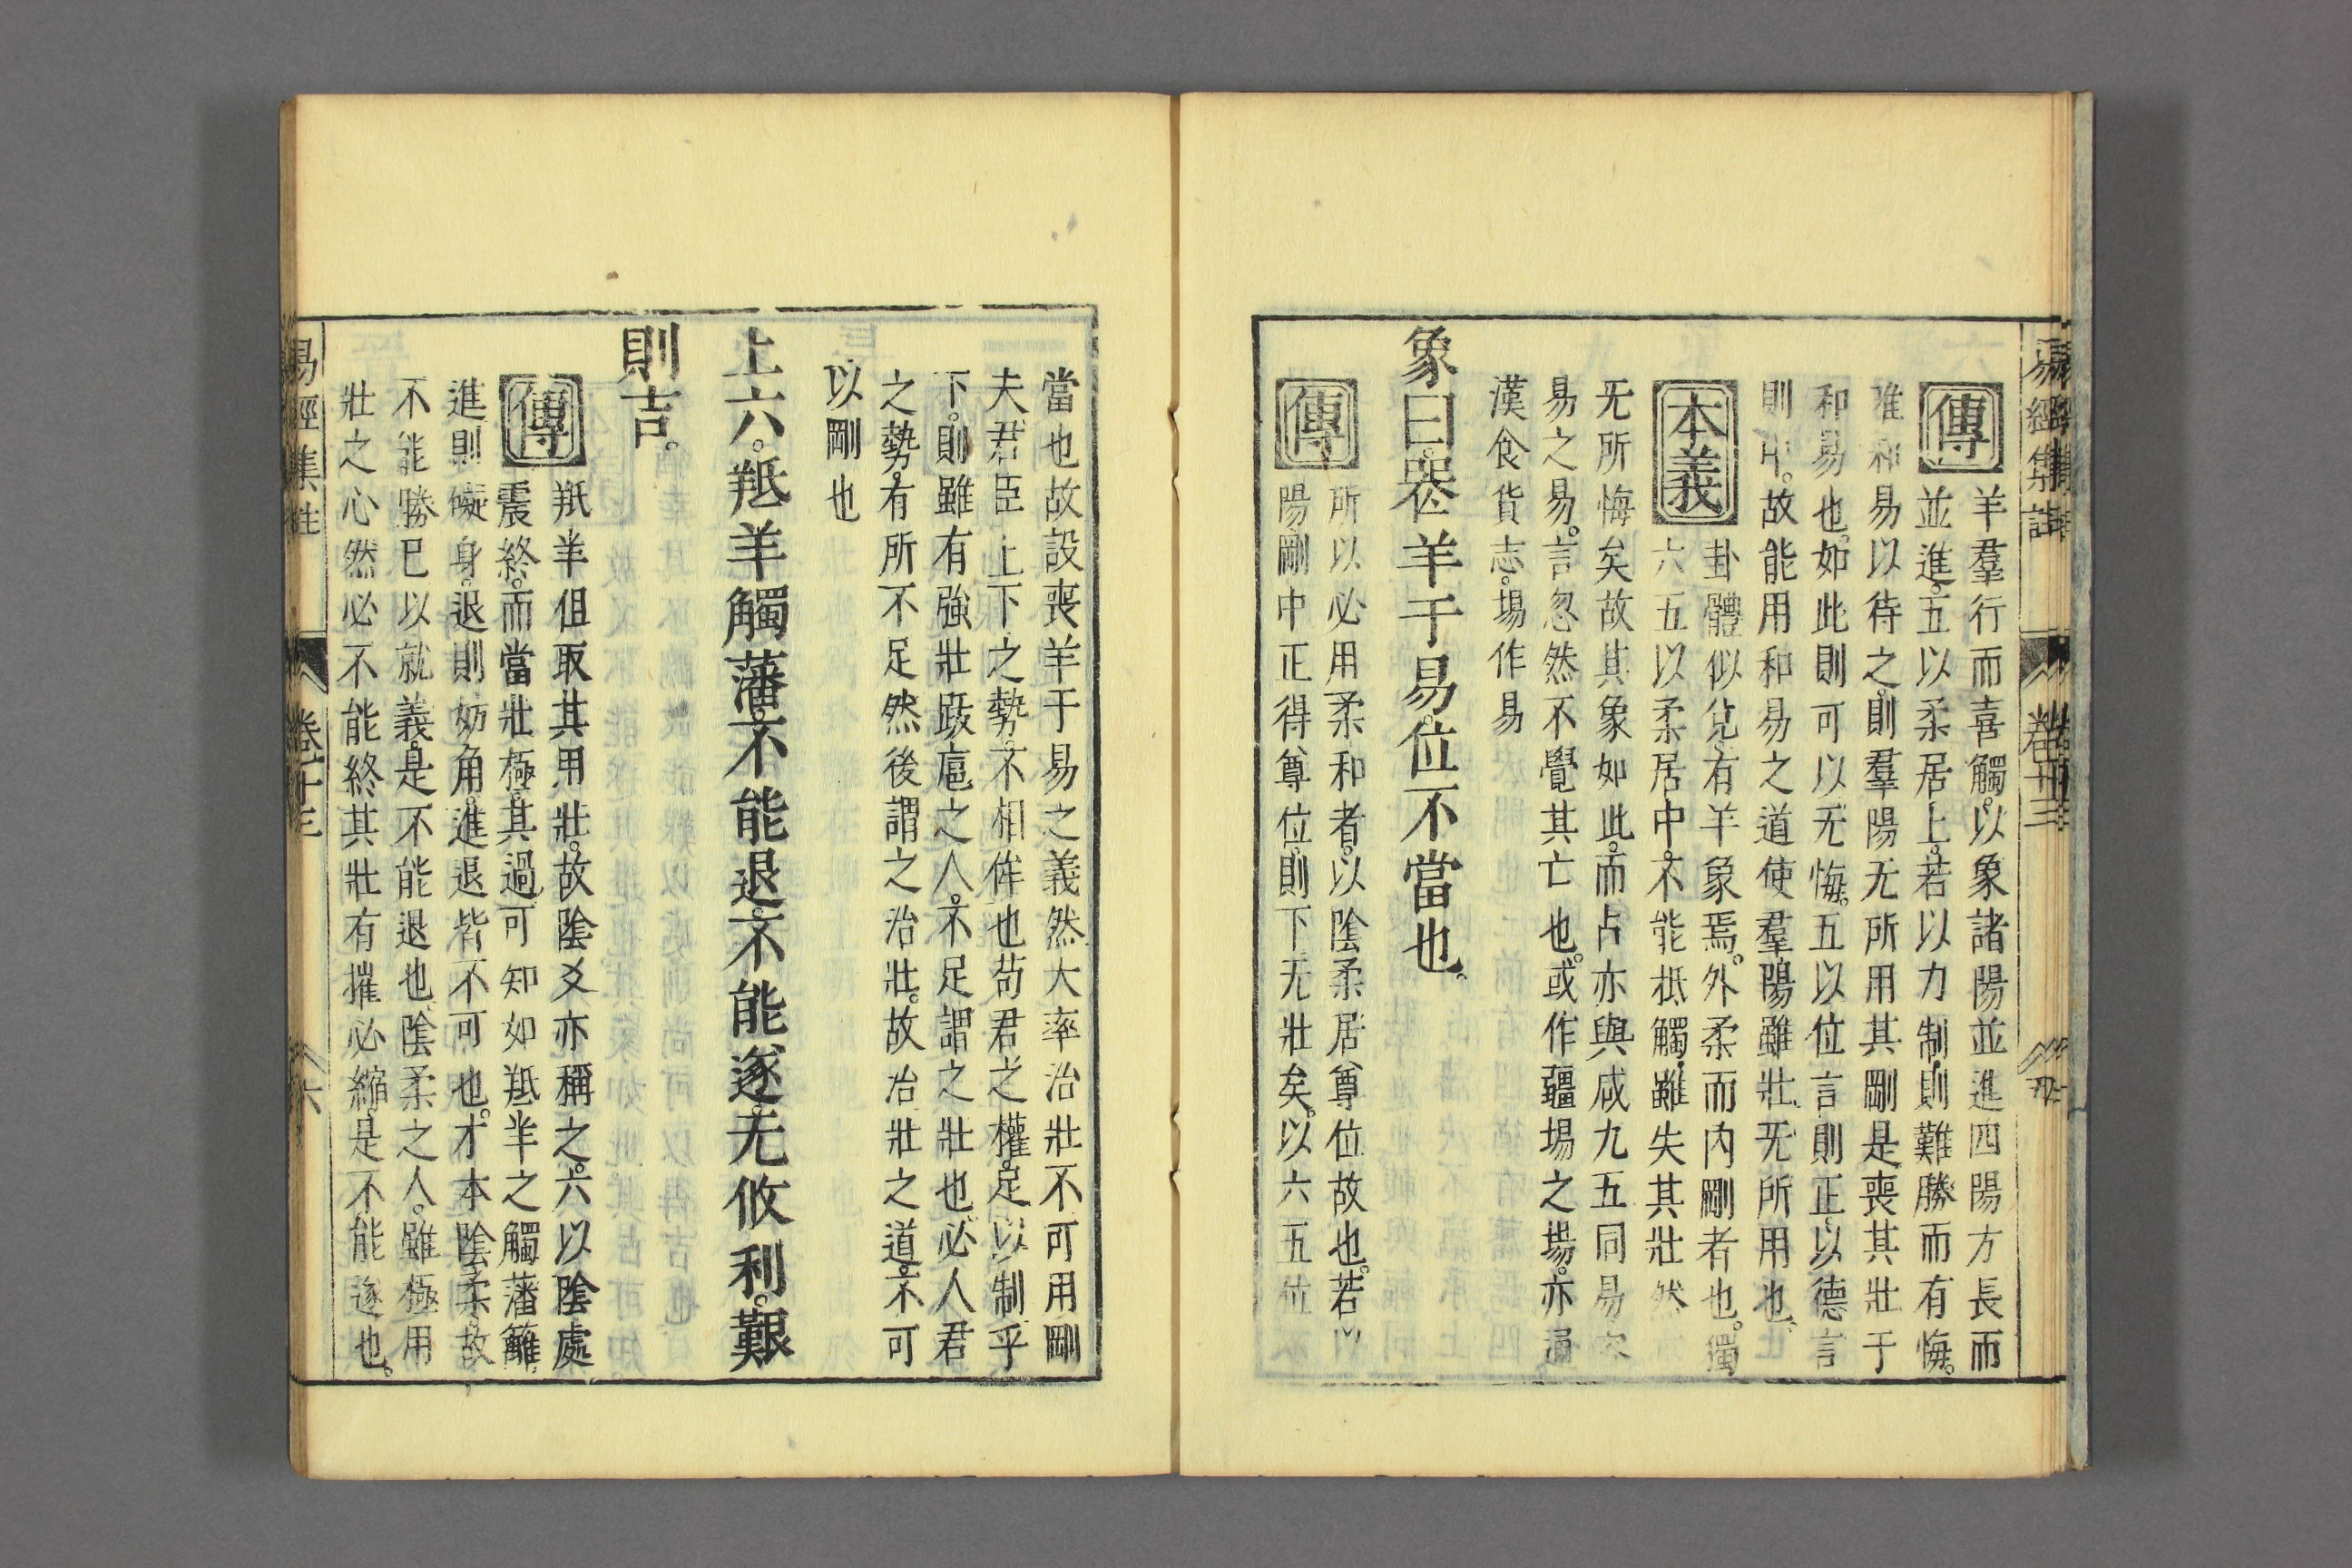 傳
羊羣行而喜觸以象諸陽並進四陽方長而
並進五以柔居上若以力制則難勝而有悔
唯和易以待之則羣陽无所用其剛是喪其壯于
和易也如此則可以无悔五以位言則正以德言
則中故能用和易之道使羣陽雖壯无所用也
本義
卦體似兌有羊象焉外柔而內剛者也獨
六五以柔居中不能抵觸雖失其壯然
无所悔矣故其象如此而占亦與咸九五同易容
易之易言忽然不覺其亡也或作疆場之場亦通
漢食貨志場作易
象曰喪羊于易位不當也
傳
所以必用柔和者以陰柔居尊位故也若以
陽剛中正得尊位則下无壯矣以六五位
當也故設喪羊于易之義然大率治壯不可用剛
夫君臣上下之勢不相侔也苟君之權足以制乎
下則雖有強壯跋扈之人不足謂之壯也必人君
之勢有所不足然後謂之治壯故治壯之道不可
以剛也
上六羝羊觸藩不能退不能遂无攸利艱
則吉
傳
羝羊但取其用壯故陰爻亦稱之六以陰處
震終而當壯極其過可知如羝羊之觸藩籬
進則礙身退則妨角進退皆不可也才本陰柔故
不能勝己以就義是不能退也陰柔之人雖極用
壯之心然必不能終其壯有摧必縮是不能遂也
易經集註
卷十三
六